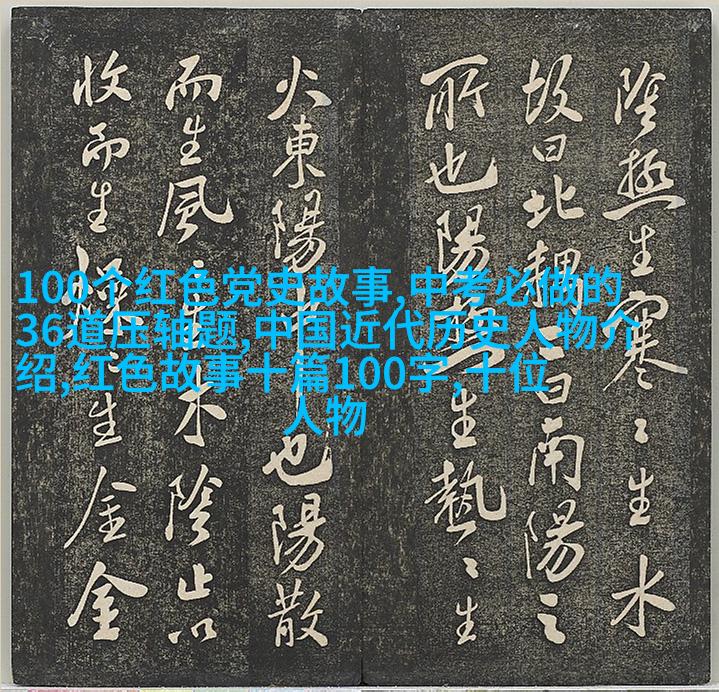 100个红色党史故事,中考必做的
36道压轴题,中国近代历史人物介
绍,红色故事十篇100字,十位
人物
陰極生寒〻生水
故曰北耦曰南陽之
所也陽極生熱〻生
火東陽也陽散
而生風〻生木陰止以
收而生燥〻生金金